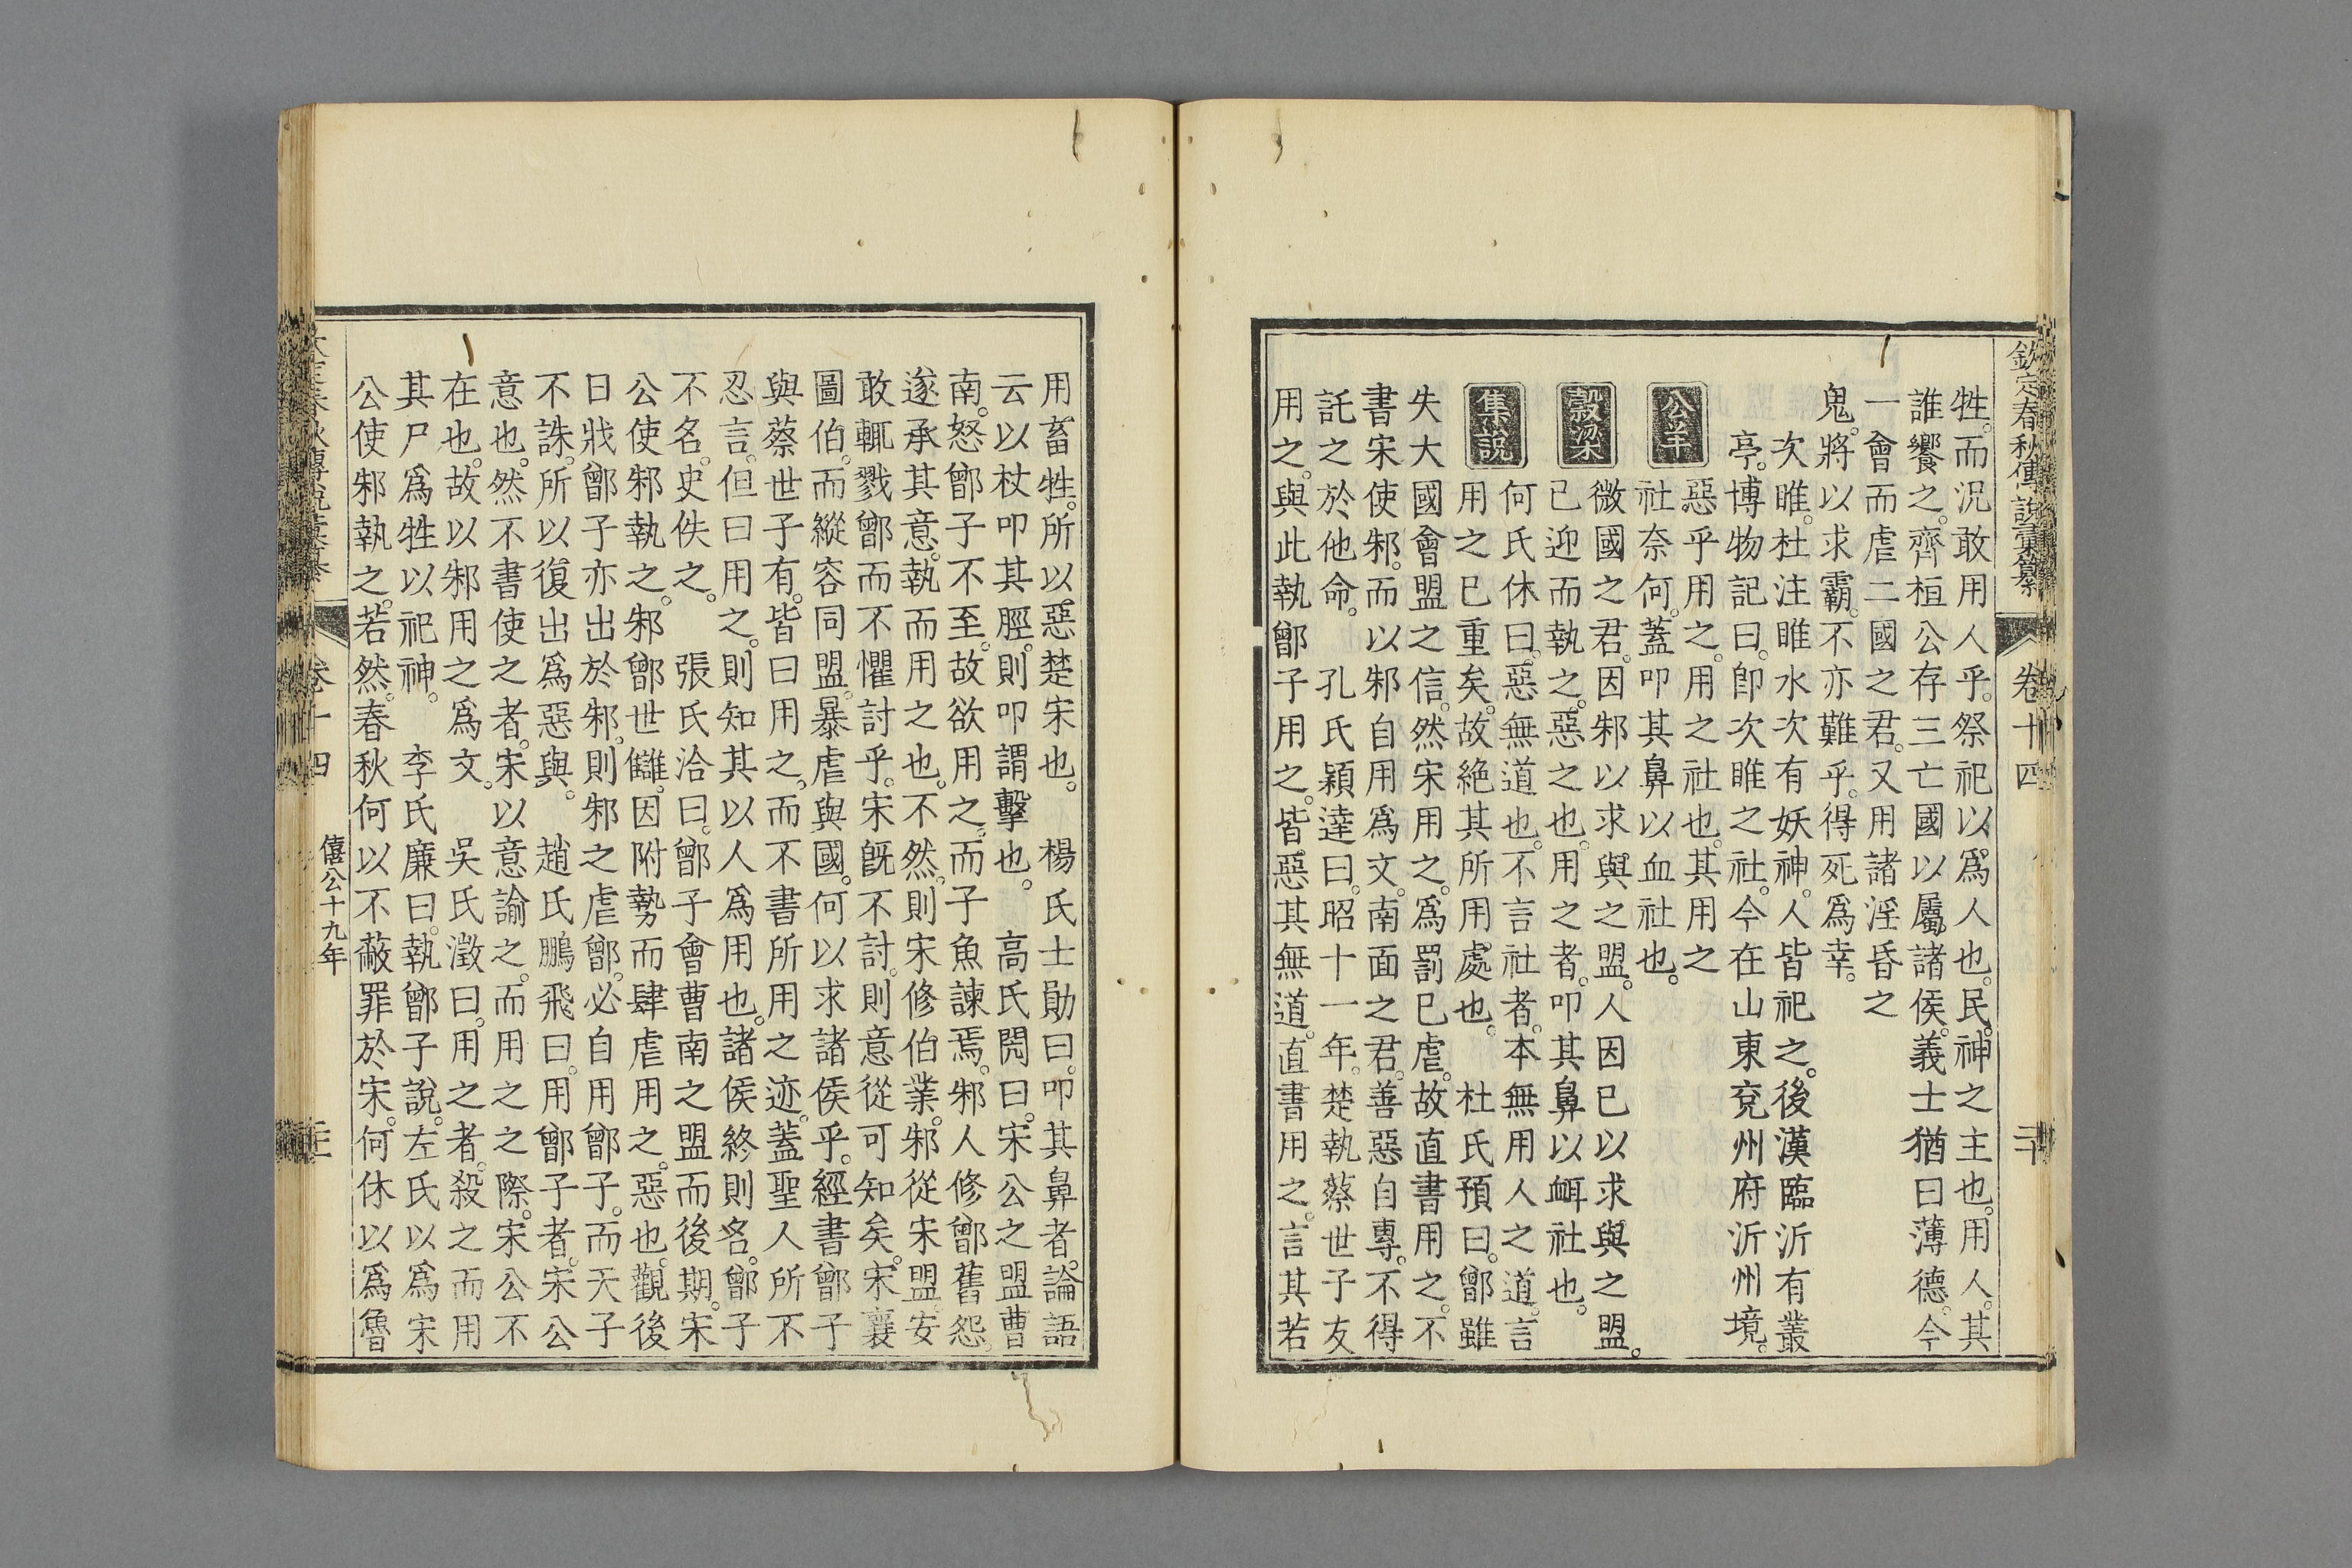 欽定春秋傳說彙纂 卷十四 二十
牲。而況敢用人乎。祭祀以爲人也。民。神之主也。用人。其
誰饗之。齊桓公存三亡國以屬諸侯。義士猶曰薄德。今
一會而虐二國之君。又用諸淫昏之
鬼。將以求霸。不亦難乎。得死爲幸。
次睢。杜注睢水次有妖神。人皆祀之。後漢臨沂有叢
亭。博物記曰。卽次睢之社。今在山東兗州府沂州境。
惡乎用之。用之社也。其用之
公羊 社奈何。蓋叩其鼻以血社也。
微國之君。因邾以求與之盟。人因己以求與之盟。
穀梁 已迎而執之。惡之也。用之者。叩其鼻以衈社也。
何氏休曰。惡無道也。不言社者。本無用人之道。言
集說 用之已重矣。故絕其所用處也。 杜氏預曰。鄫雖
失大國會盟之信。然宋用之。爲罰已虐。故直書用之。不
書宋使邾。而以邾自用爲文。南面之君。善惡自專。不得
託之於他命。 孔氏穎達曰。昭十一年。楚執蔡世子友
用之。與此執鄫子用之。皆惡其無道。直書用之。言其若
用畜牲。所以惡楚宋也。 楊氏士勛曰。叩其鼻者。論語
云以杖叩其脛。則叩謂擊也。 高氏閌曰。宋公之盟曹
南。怒鄫子不至。故欲用之。而子魚諫焉。邾人修鄫舊怨。
遂承其意。執而用之也。不然。則宋修伯業。邾從宋盟。安
敢輒戮鄫而不懼討乎。宋旣不討。則意從可知矣。宋襄
圖伯。而縱容同盟。暴虐與國。何以求諸侯乎。經書鄫子
與蔡世子有。皆曰用之。而不書所用之迹。蓋聖人所不
忍言。但曰用之。則知其以人爲用也。諸侯終則名。鄫子
不名。史佚之。 張氏洽曰。鄫子會曹南之盟而後期。宋
公使邾執之。邾鄫世讎。因附勢而肆虐用之。惡也。觀後
日戕鄫子亦出於邾。則邾之虐鄫。必自用鄫子。而天子
不誅。所以復出爲惡與。 趙氏鵬飛曰。用鄫子者。宋公
意也。然不書使之者。宋以意諭之。而用之之際。宋公不
在也。故以邾用之爲文。 吳氏澂曰。用之者。殺之而用
其尸爲牲以祀神。 李氏廉曰。執鄫子說。左氏以爲宋
公使邾執之。若然。春秋何以不蔽罪於宋。何休以爲魯
卷十四 僖公十九年